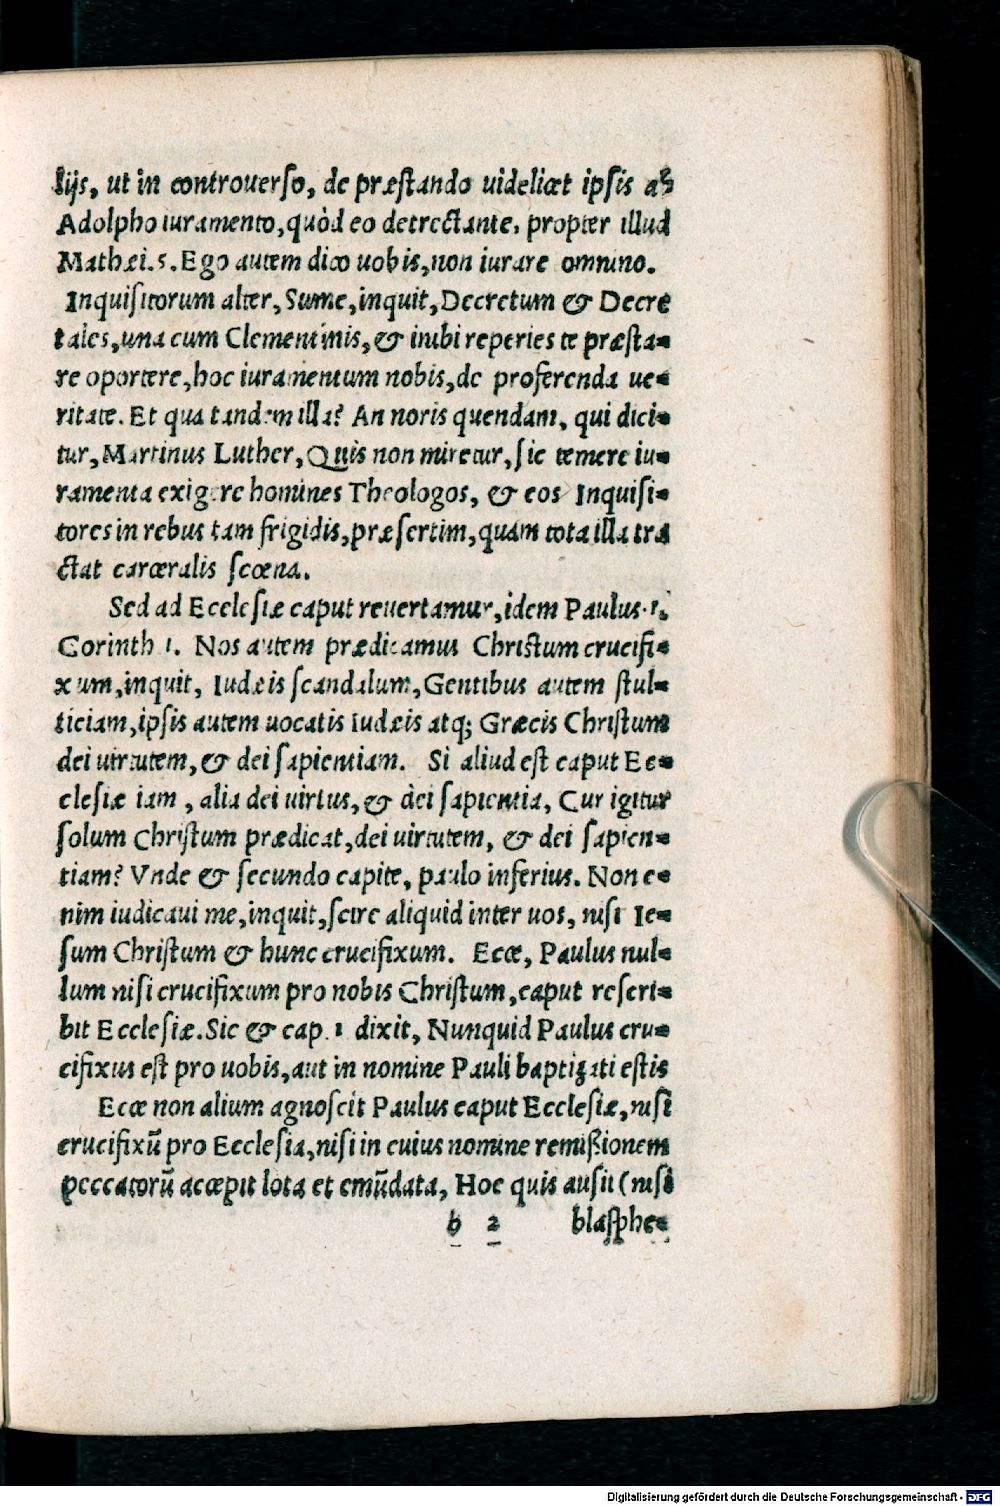 lijs, ut in controuerso, de præstando uidelicet ipsis ab
Adolpho iuramento, quòd eo detrectante, propter illud
Mathæi. 5. Ego autem dico uobis, non iurare omnino.
Inquisitorum alter, Sume, inquit, Decretum & Decre
tales, una cum Clementinis, & inibi reperies te præsta-
re oportere, hoc iuramentum nobis, de proferenda ue-
ritate. Et qua tandem illa? An noris quendam, qui dici-
tur, Martinus Luther, Quis non miretur, sic temere iu-
ramenta exigere homines Theologos, & eos Inquisi-
tores in rebus tam frigidis, præsertim, quàm tota illa tra
ctat carceralis scœna.
Sed ad Ecclesiæ caput reuertamur, idem Paulus. 1.
Corinth 1. Nos autem prædicamus Christum crucifi-
xum, inquit, Iudæis scandalum, Gentibus autem stul-
ticiam, ipsis autem uocatis Iudæis atq; Græcis Christum
dei uirtutem, & dei sapientiam. Si aliud est caput Ec-
clesiæ iam, alia dei uirtus, & dei sapientia, Cur igitur
solum Christum prædicat, dei uirtutem, & dei sapien-
tiam? Vnde & secundo capite, paulo inferius. Non e-
nim iudicaui me, inquit, scire aliquid inter uos, nisi Ie-
sum Christum & hunc crucifixum. Ecce, Paulus nul-
lum nisi crucifixum pro nobis Christum, caput rescri-
bit Ecclesiæ. Sic & cap. 1 dixit, Nunquid Paulus cru-
cifixus est pro uobis, aut in nomine Pauli baptizati estis
Ecce non alium agnoscit Paulus caput Ecclesiæ, nisi
crucifixũ pro Ecclesia, nisi in cuius nomine remißionem
peccatorũ accepit lota et emũdata, Hoc quis ausit (nisi
b 2 blasphe-
Digitalisierung gefördert durch die Deutsche Forschungsgemeinschaft - DFG